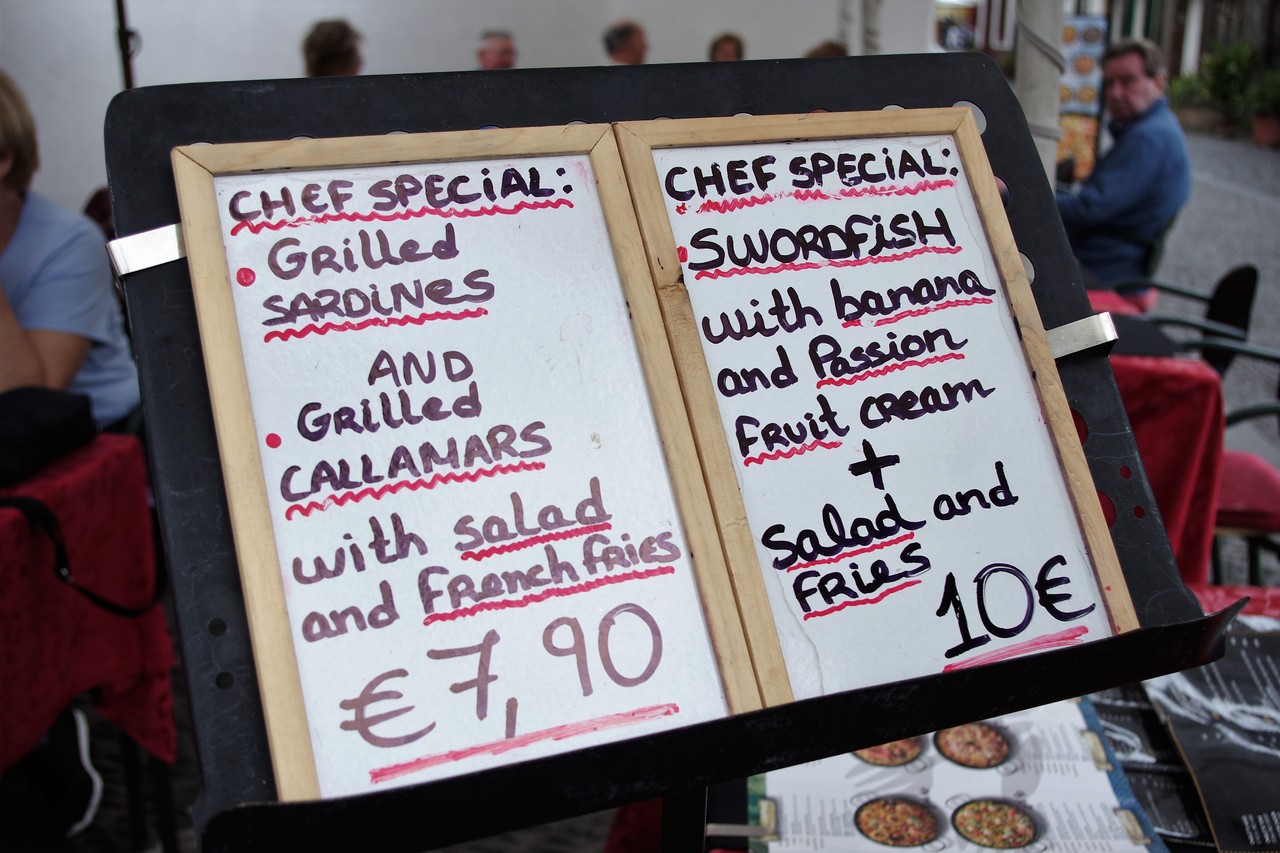 CHEF SPECIAL:
• Grilled
SARDINES
AND
• Grilled
CALLAMARS
with salad
and French fries
€ 7,90
CHEF SPECIAL:
• SWORDFISH
with banana
and Passion
Fruit cream
+
Salad and
FRIES
10€